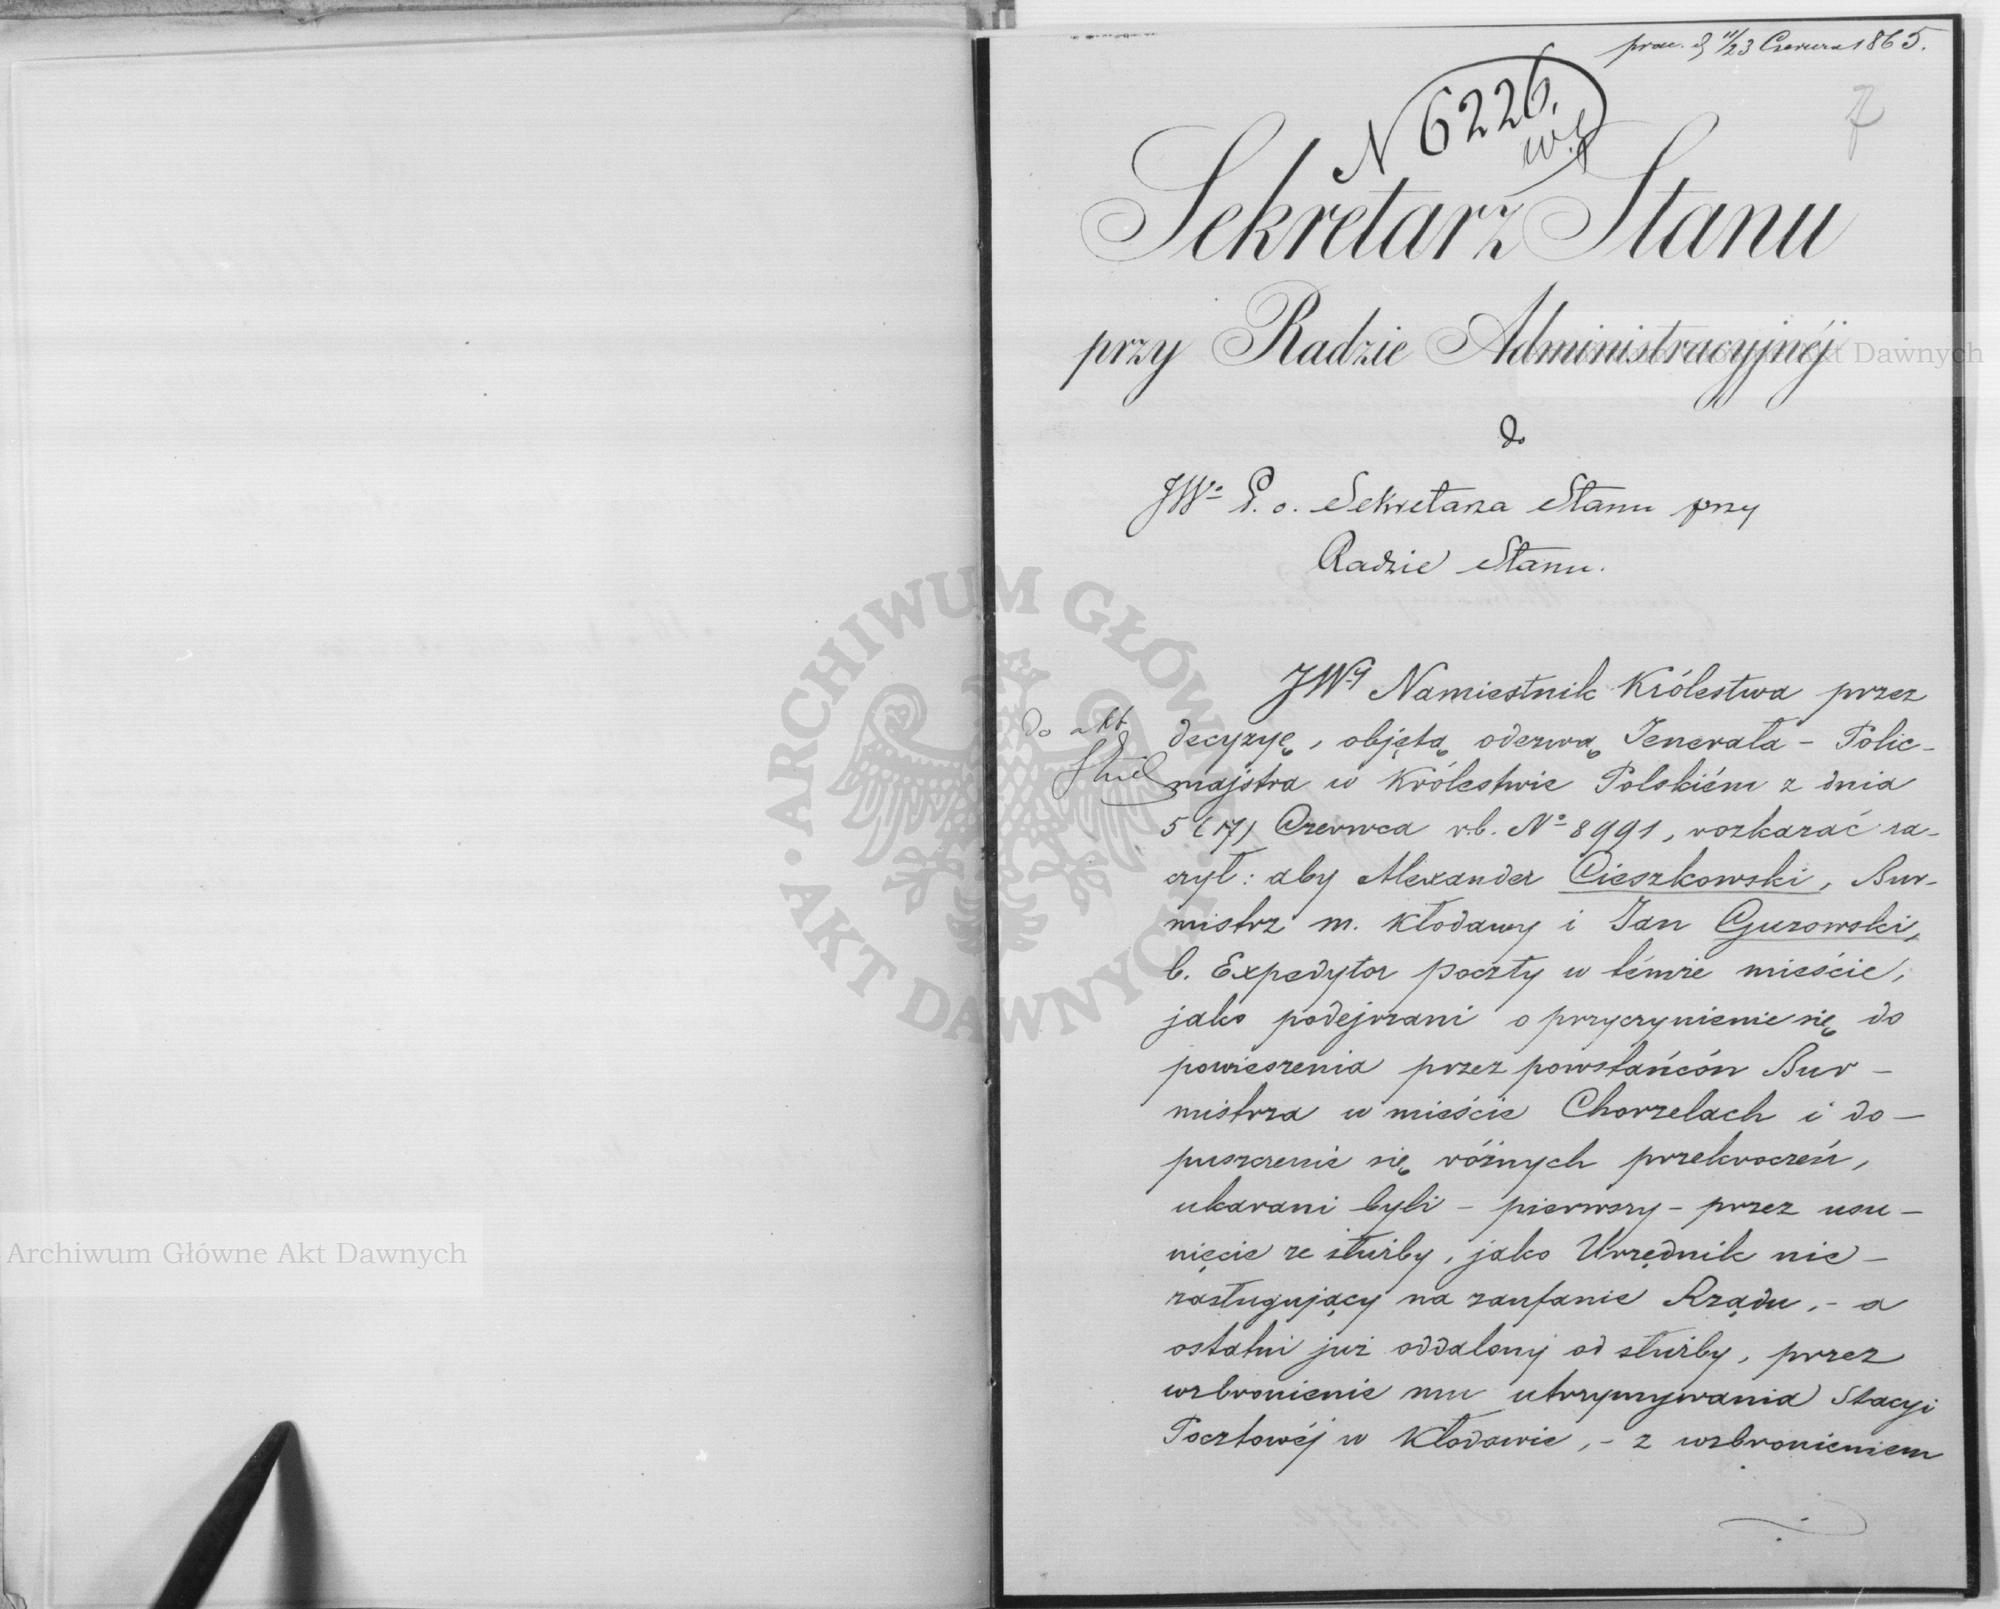 prae. d 11/23 Czerwca 1865.
N 6226.
7
Sekretarz Stanu
przy Radzie Administracyjnéj
do
JWo P. o. Sekretarza Stanu przy
Radzie Stanu.
do akt
JWy Namiestnik Królestwa przez
decyzyę, objętą odezwą Jenerała - Polic-
majstra w Królestwie Polskiém z dnia
5 (17) Czerwca rb. No 8991, rozkazać ra-
czył: aby Alexander Cieszkowski, Bur-
mistrz m. Kłodawy i Jan Gurowski,
b. Expedytor poczty w témże mieście,
jako podejrzani o przyczynienie się do
powieszenia przez powstańców Bur-
mistrza w mieście Chorzelach i do-
puszczenie się różnych przekroczeń,
ukarani byli - pierwszy - przez usu-
nięcie ze służby, jako Urzędnik nie-
zasługujący na zaufanie Rządu, - a
ostatni już oddalony od służby, przez
wzbronienie mu utrzymywania Stacyi
Pocztowéj w Kłodawie, - z wzbronieniem
ARCHIWUM GŁÓWNE AKT DAWNYCH
Archiwum Główne Akt Dawnych
Akt Dawnych